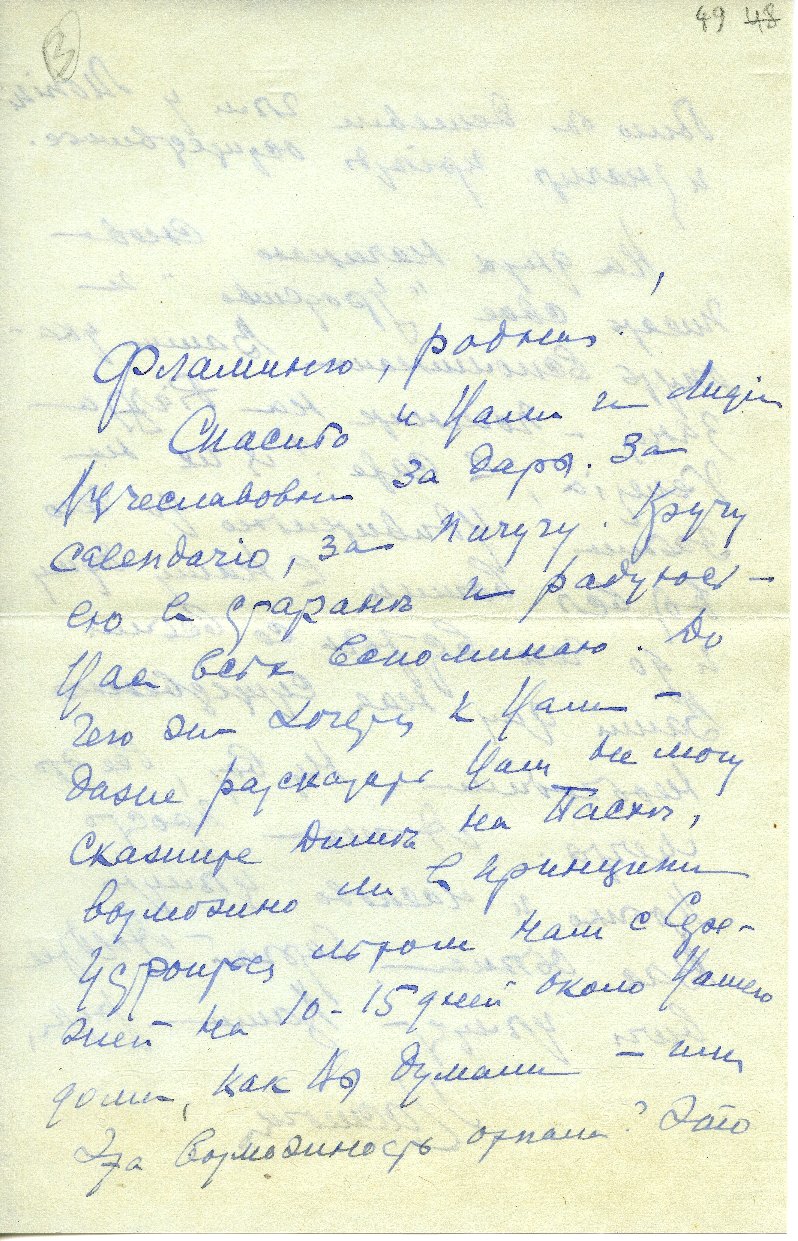 49 48
3
Фламинго, родная!
Спасибо Вам и Лидии
Вячеславовне за дары. За
calendario, за пичугу. Кручу
ею в и радуюсь –
Вас всѣх вспоминаю. До
чего же хочется к Вам –
даже рассказать Вам не могу
скажите Димѣ на Пасхѣ,
возможно ли в принципе
устроиться лѣтом нам с Сере-
жей на 10-15 дней около Вашего
дома, как Вы думали – или
эта возможность отпала? Это